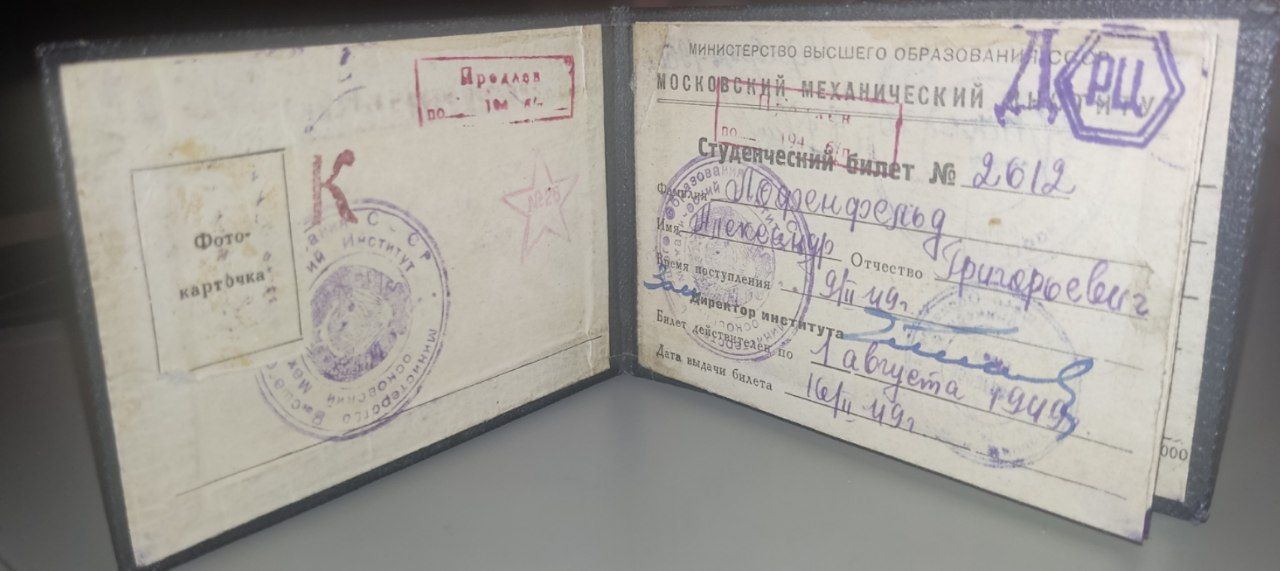 Продлен
по 194 г.
К
№26
Фото-
карточка
Министерство Высшего
Московский Мех Институт
МИНИСТЕРСТВО ВЫСШЕГО ОБРАЗОВАНИЯ СССР
МОСКОВСКИЙ МЕХАНИЧЕСКИЙ
РЦ
по 194
Студенческий билет № 2612
Фамилия Лофенфельд
Имя Александр Отчество Григорьевич
Время поступления 9/II 49г.
Зам. Директор института
Билет действителен по 1 августа 1949г.
Дата выдачи билета 16/II 49г.
000